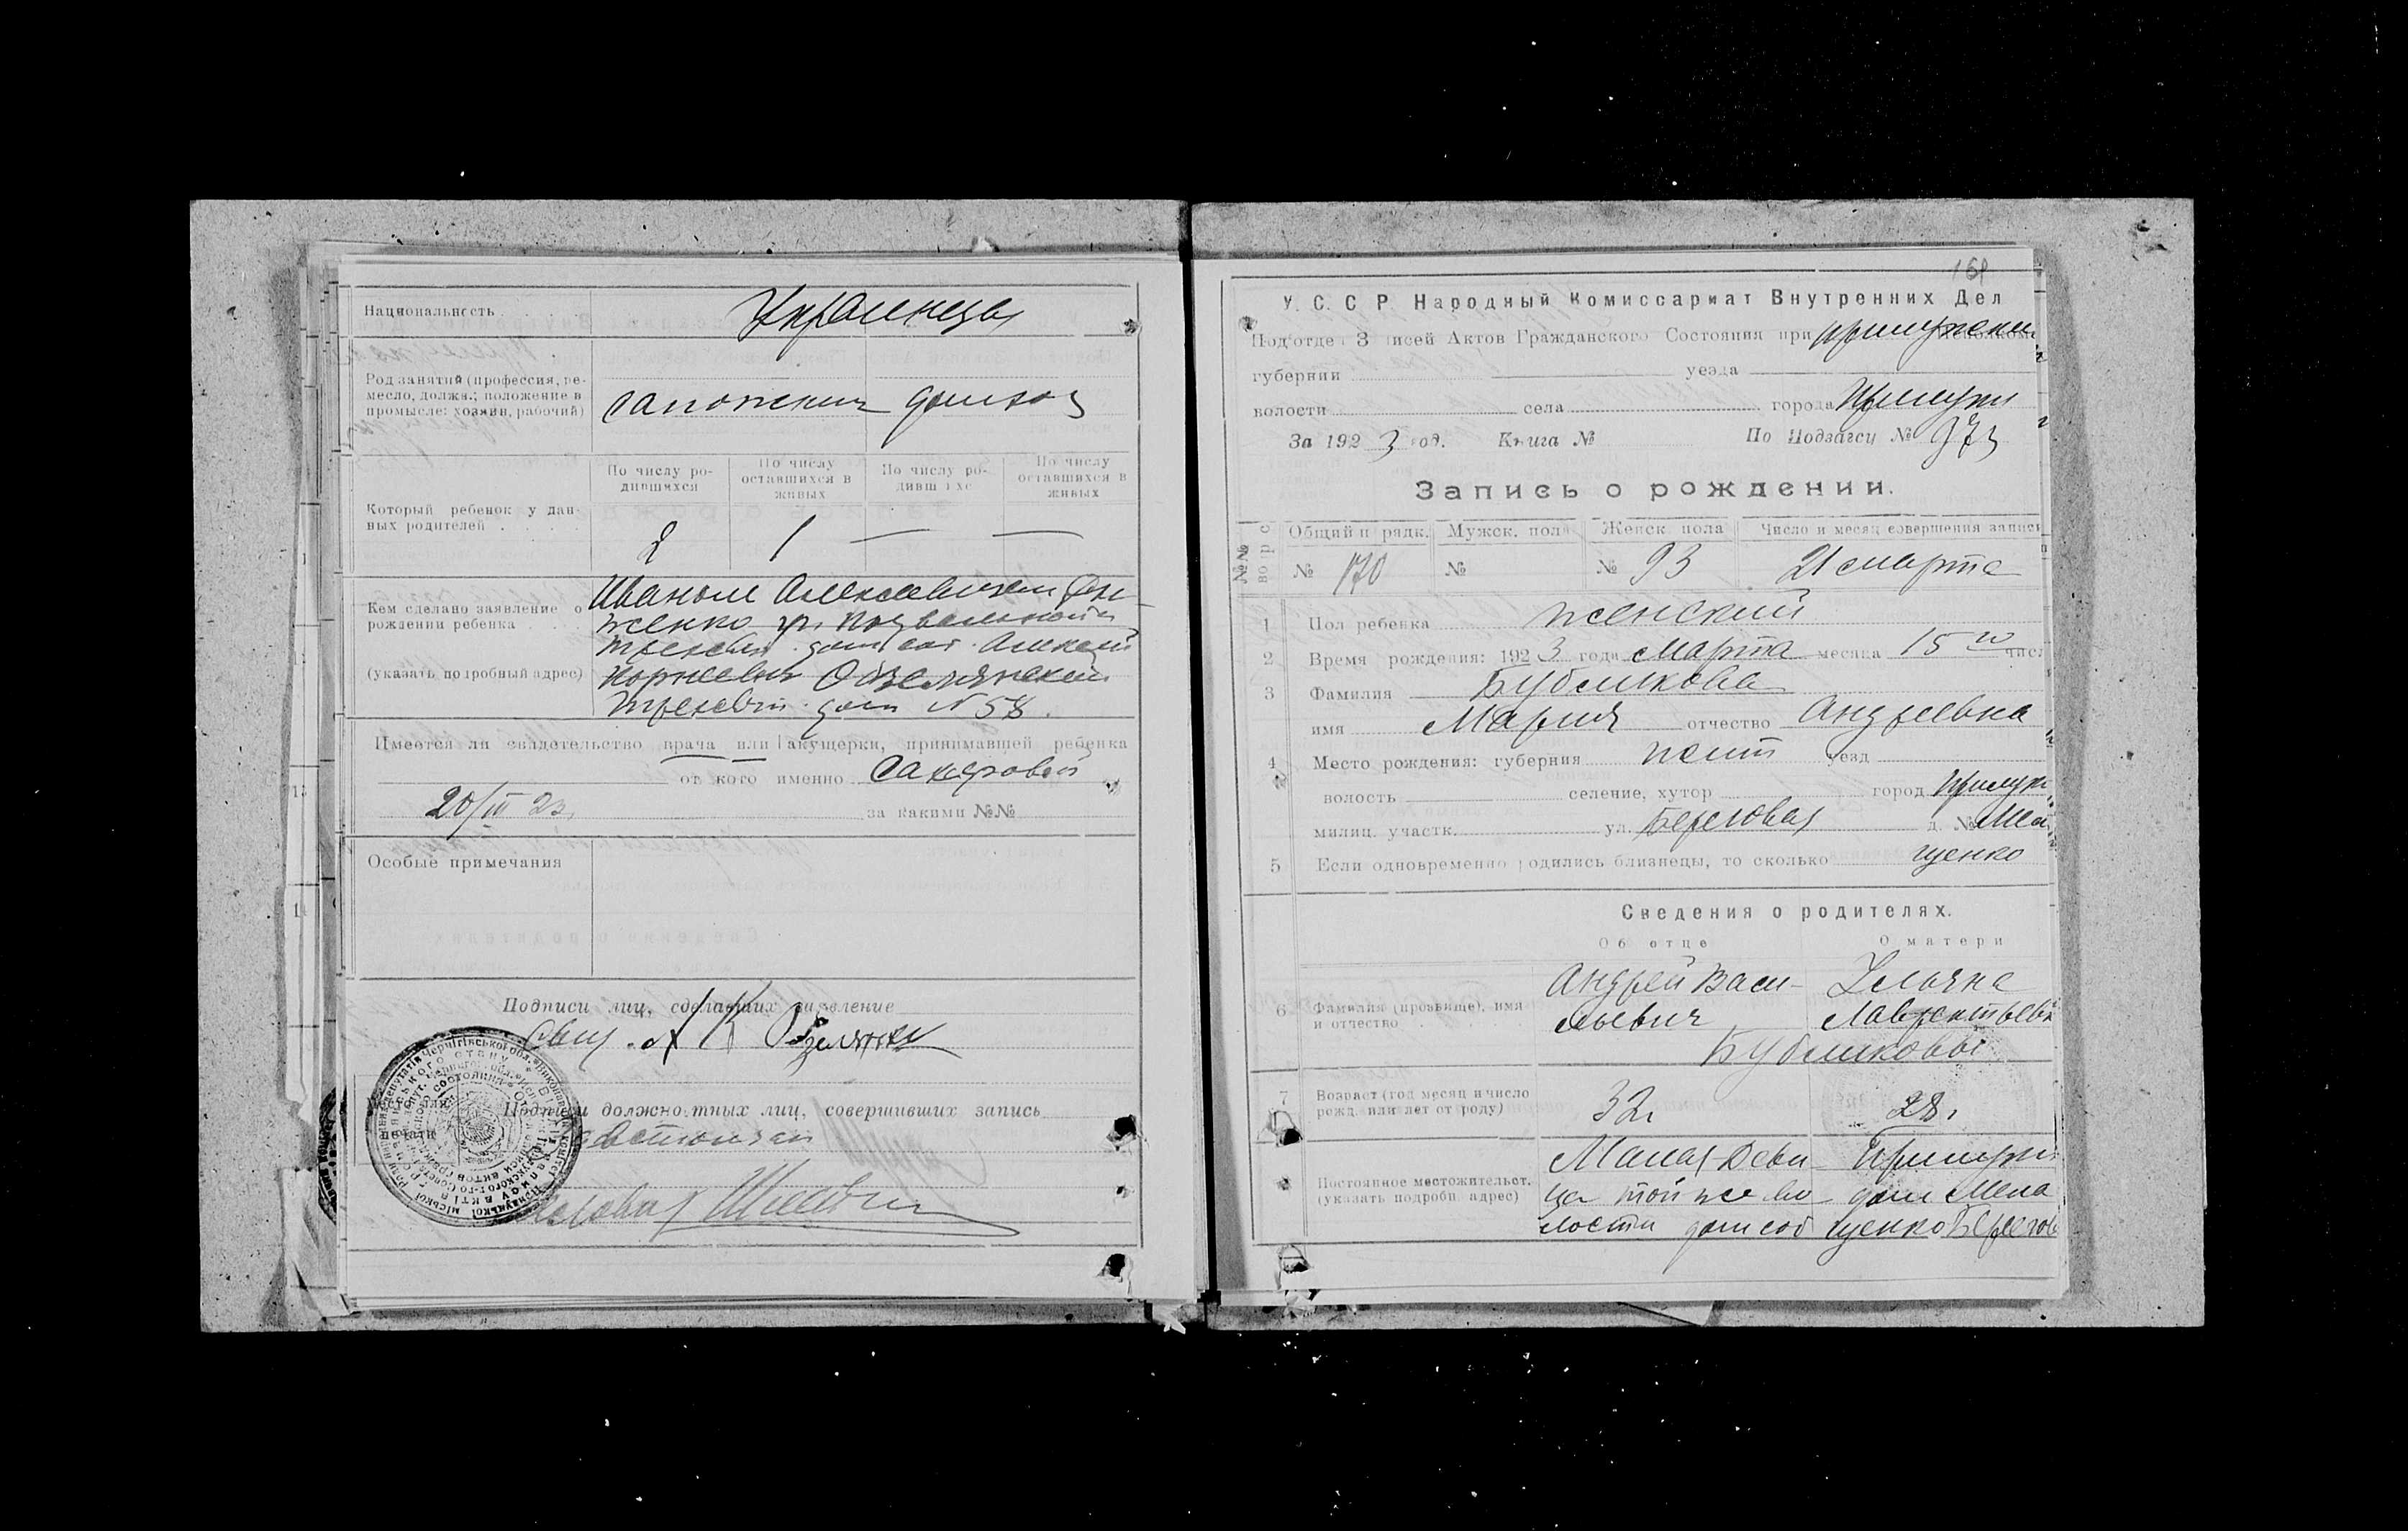 Национальность
Украинцы
Род занятий (профессия, ре-
месло, должн.; положение в
промысле: хозяин, рабочий)
сапожник домхоз
По числу ро-
дившихся
По числу
оставшихся в
живых
По числу ро-
дивш хс
По числу
оставшихся в
живых
Который ребенок у дан-
ных родителей
2 1 — —
Кем сделано заявление о
рождении ребенка
(указать подробный адрес)
Иваном Алексеевичем
женко гр.
дом соб. Алексей
Корнеевич Обземлянский
дом N 58.
Имеется ли свидетельство врача или акушерки, принимавшей ребенка
от кого именно Сахаровой
20/III 23. за какими №№
Особые примечания
Подписи лиц, сделавших заявление
А К
Место для печати
Подписи должностных лиц, совершивших запись
168
У. С. С Р Народный Комиссариат Внутренних Дел
Подотдел З писей Актов Гражданского Состояния при
губернии уезда
волости села города Прилуки
За 1923 год. Книга № По Подзагсу № 973
Запись о рождении.
№№ Общий п рядк. Мужск. пола Женск пола Число и месяц совершения записи
№ 170 № № 93 21 марта
1 Пол ребенка женский
2 Время рождения: 1923 года марта месяца 15 го числ
3 Фамилия Бубликова
имя Мария отчество Андреевна
4 Место рождения: губерния уезд
волость селение, хутор город Прилуки
милиц. участк. ул. Береговая д. № Мела
5 Если одновременно родились близнецы, то сколько щенко
Сведения о родителях.
Об отце О матери
6 Фамилия (прозвище), имя
и отчество
Андрей Васи- Ульяна
льевич Лаврентьевн
Бубликовы
7 Возраст (год месяц и число
рожд. или лет от роду)
32 г 28 г
Постоянное местожительст.
(указать подробн адрес)
Малая Деви- Прилуки
ца той же во- дом Мела
лости дом соб щенко Берегов